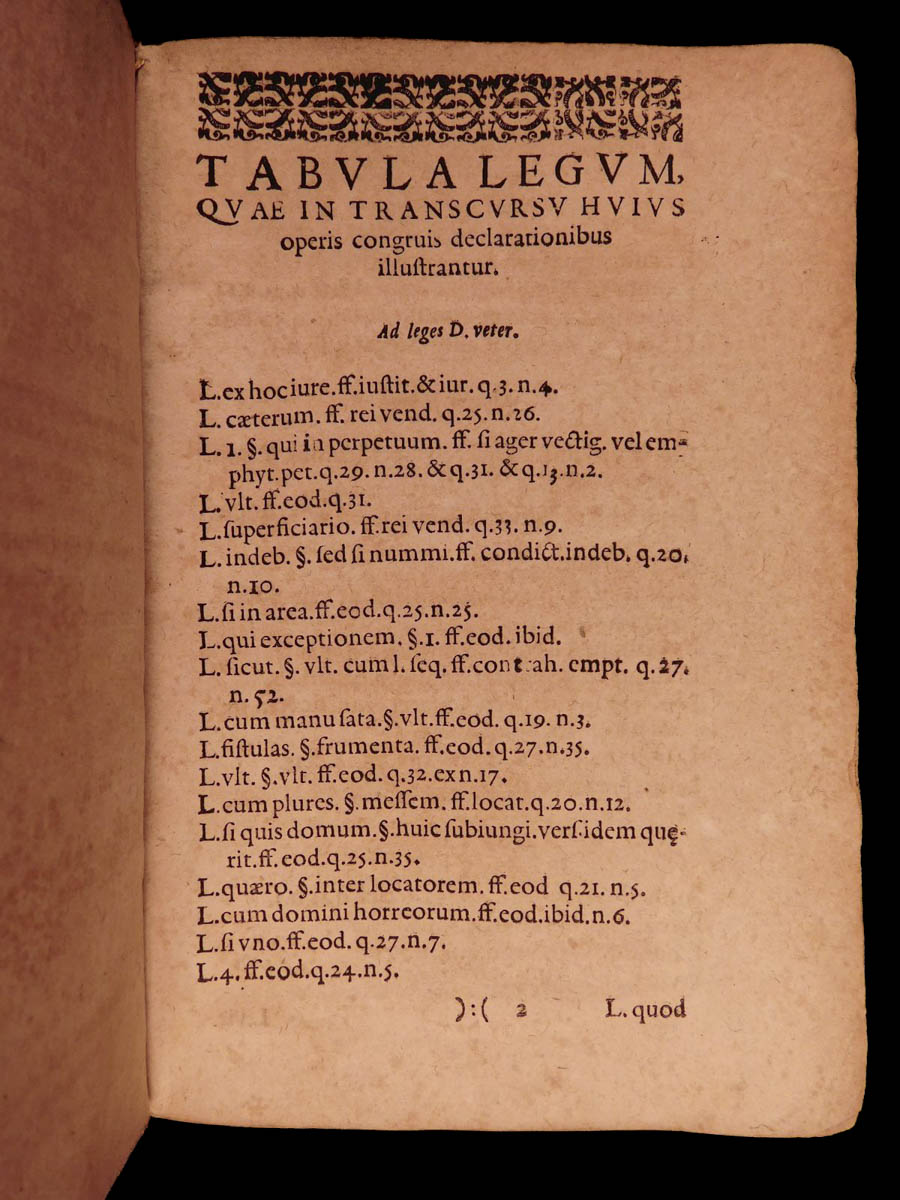 TABVLA LEGVM,
QVAE IN TRANSCVRSV HVIVS
operis congruis declarationibus
illuſtrantur.
Ad leges D. veter.
L. ex hoc iure. ff. iuſtit. & iur. q.3. n.4.
L. cæterum. ff. rei vend. q.25. n.26.
L. 1. §. qui in perpetuum. ff. ſi ager vectig. vel em-
phyt. pet. q.29. n.28. & q.31. & q.13. n.2.
L. vlt. ff. eod. q.31.
L. ſuperficiario. ff. rei vend. q.33. n.9.
L. indeb. §. ſed ſi nummi. ff. condict. indeb. q.20.
n.10.
L. ſi in area. ff. eod. q.25. n.25.
L. qui exceptionem. §.1. ff. eod. ibid.
L. ſicut. §. vlt. cum l. ſeq. ff. contrah. empt. q.27.
n.52.
L. cum manu ſata. §. vlt. ff. eod. q.19. n.3.
L. fiſtulas. §. frumenta. ff. eod. q.27. n.35.
L. vlt. §. vlt. ff. eod. q.32. ex n.17.
L. cum plures. §. meſſem. ff. locat. q.20. n.12.
L. ſi quis domum. §. huic ſubiungi. verſ. idem quę-
rit. ff. eod. q.25. n.35.
L. quæro. §. inter locatorem. ff. eod q.21. n.5.
L. cum domini horreorum. ff. eod. ibid. n.6.
L. ſi vno. ff. eod. q.27. n.7.
L. 4. ff. eod. q.24. n.5.
):( 2 L. quod